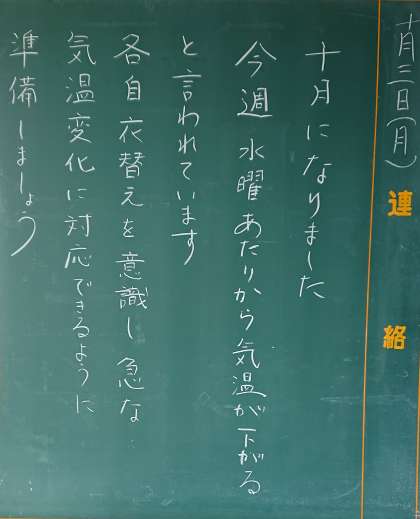 十月三日(月)
連絡
十月になりました
今週水曜あたりから気温が下がる
と言われています
各自衣替えを意識し急な
気温変化に対応できるように
準備しましょう